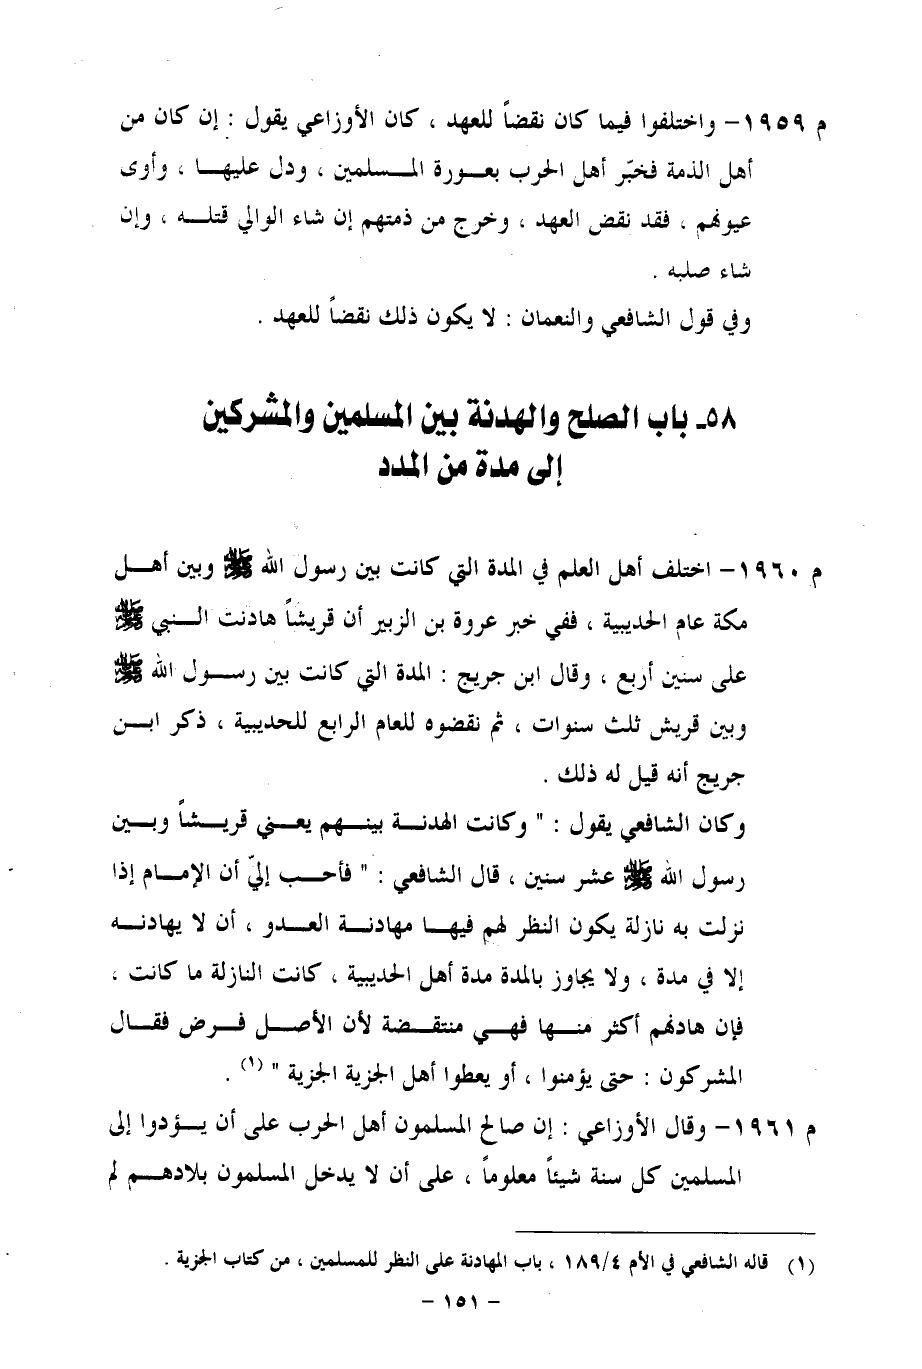 م ١٩٥٩ – واختلفوا فيما كان نقضاً للعهد ، كان الأوزاعي يقول : إن كان من
أهل الذمة فخبّر أهل الحرب بعورة المسلمين ، ودل عليها ، وأوى
عيونهم ، فقد نقض العهد ، وخرج من ذمتهم إن شاء الوالي قتله ، وإن
شاء صلبه .
وفي قول الشافعي والنعمان : لا يكون ذلك نقضاً للعهد .
٥٨ـ باب الصلح والهدنة بين المسلمين والمشركين
إلى مدة من المدد
م ١٩٦٠ – اختلف أهل العلم في المدة التي كانت بين رسول الله ﷺ وبين أهل
مكة عام الحديبية ، ففي خبر عروة بن الزبير أن قريشاً هادنت النبي ﷺ
على سنين أربع ، وقال ابن جريج : المدة التي كانت بين رسول الله ﷺ
وبين قريش ثلث سنوات ، ثم نقضوه للعام الرابع للحديبية ، ذكر ابن
جريج أنه قيل له ذلك .
وكان الشافعي يقول : " وكانت الهدنة بينهم يعني قريشاً وبين
رسول الله ﷺ عشر سنين ، قال الشافعي : " فأحب إليّ أن الإمام إذا
نزلت به نازلة يكون النظر لهم فيها مهادنة العدو ، أن لا يهادنه
إلا في مدة ، ولا يجاوز بالمدة مدة أهل الحديبية ، كانت النازلة ما كانت ،
فإن هادنهم أكثر منها فهي منتقضة لأن الأصل فرض فقال
المشركون : حتى يؤمنوا ، أو يعطوا أهل الجزية الجزية " (١) .
م ١٩٦١ – وقال الأوزاعي : إن صالح المسلمون أهل الحرب على أن يؤدوا إلى
المسلمين كل سنة شيئاً معلوماً ، على أن لا يدخل المسلمون بلادهم لم
(١) قاله الشافعي في الأم ١٨٩/٤ ، باب المهادنة على النظر للمسلمين ، من كتاب الجزية .
– ١٥١ –